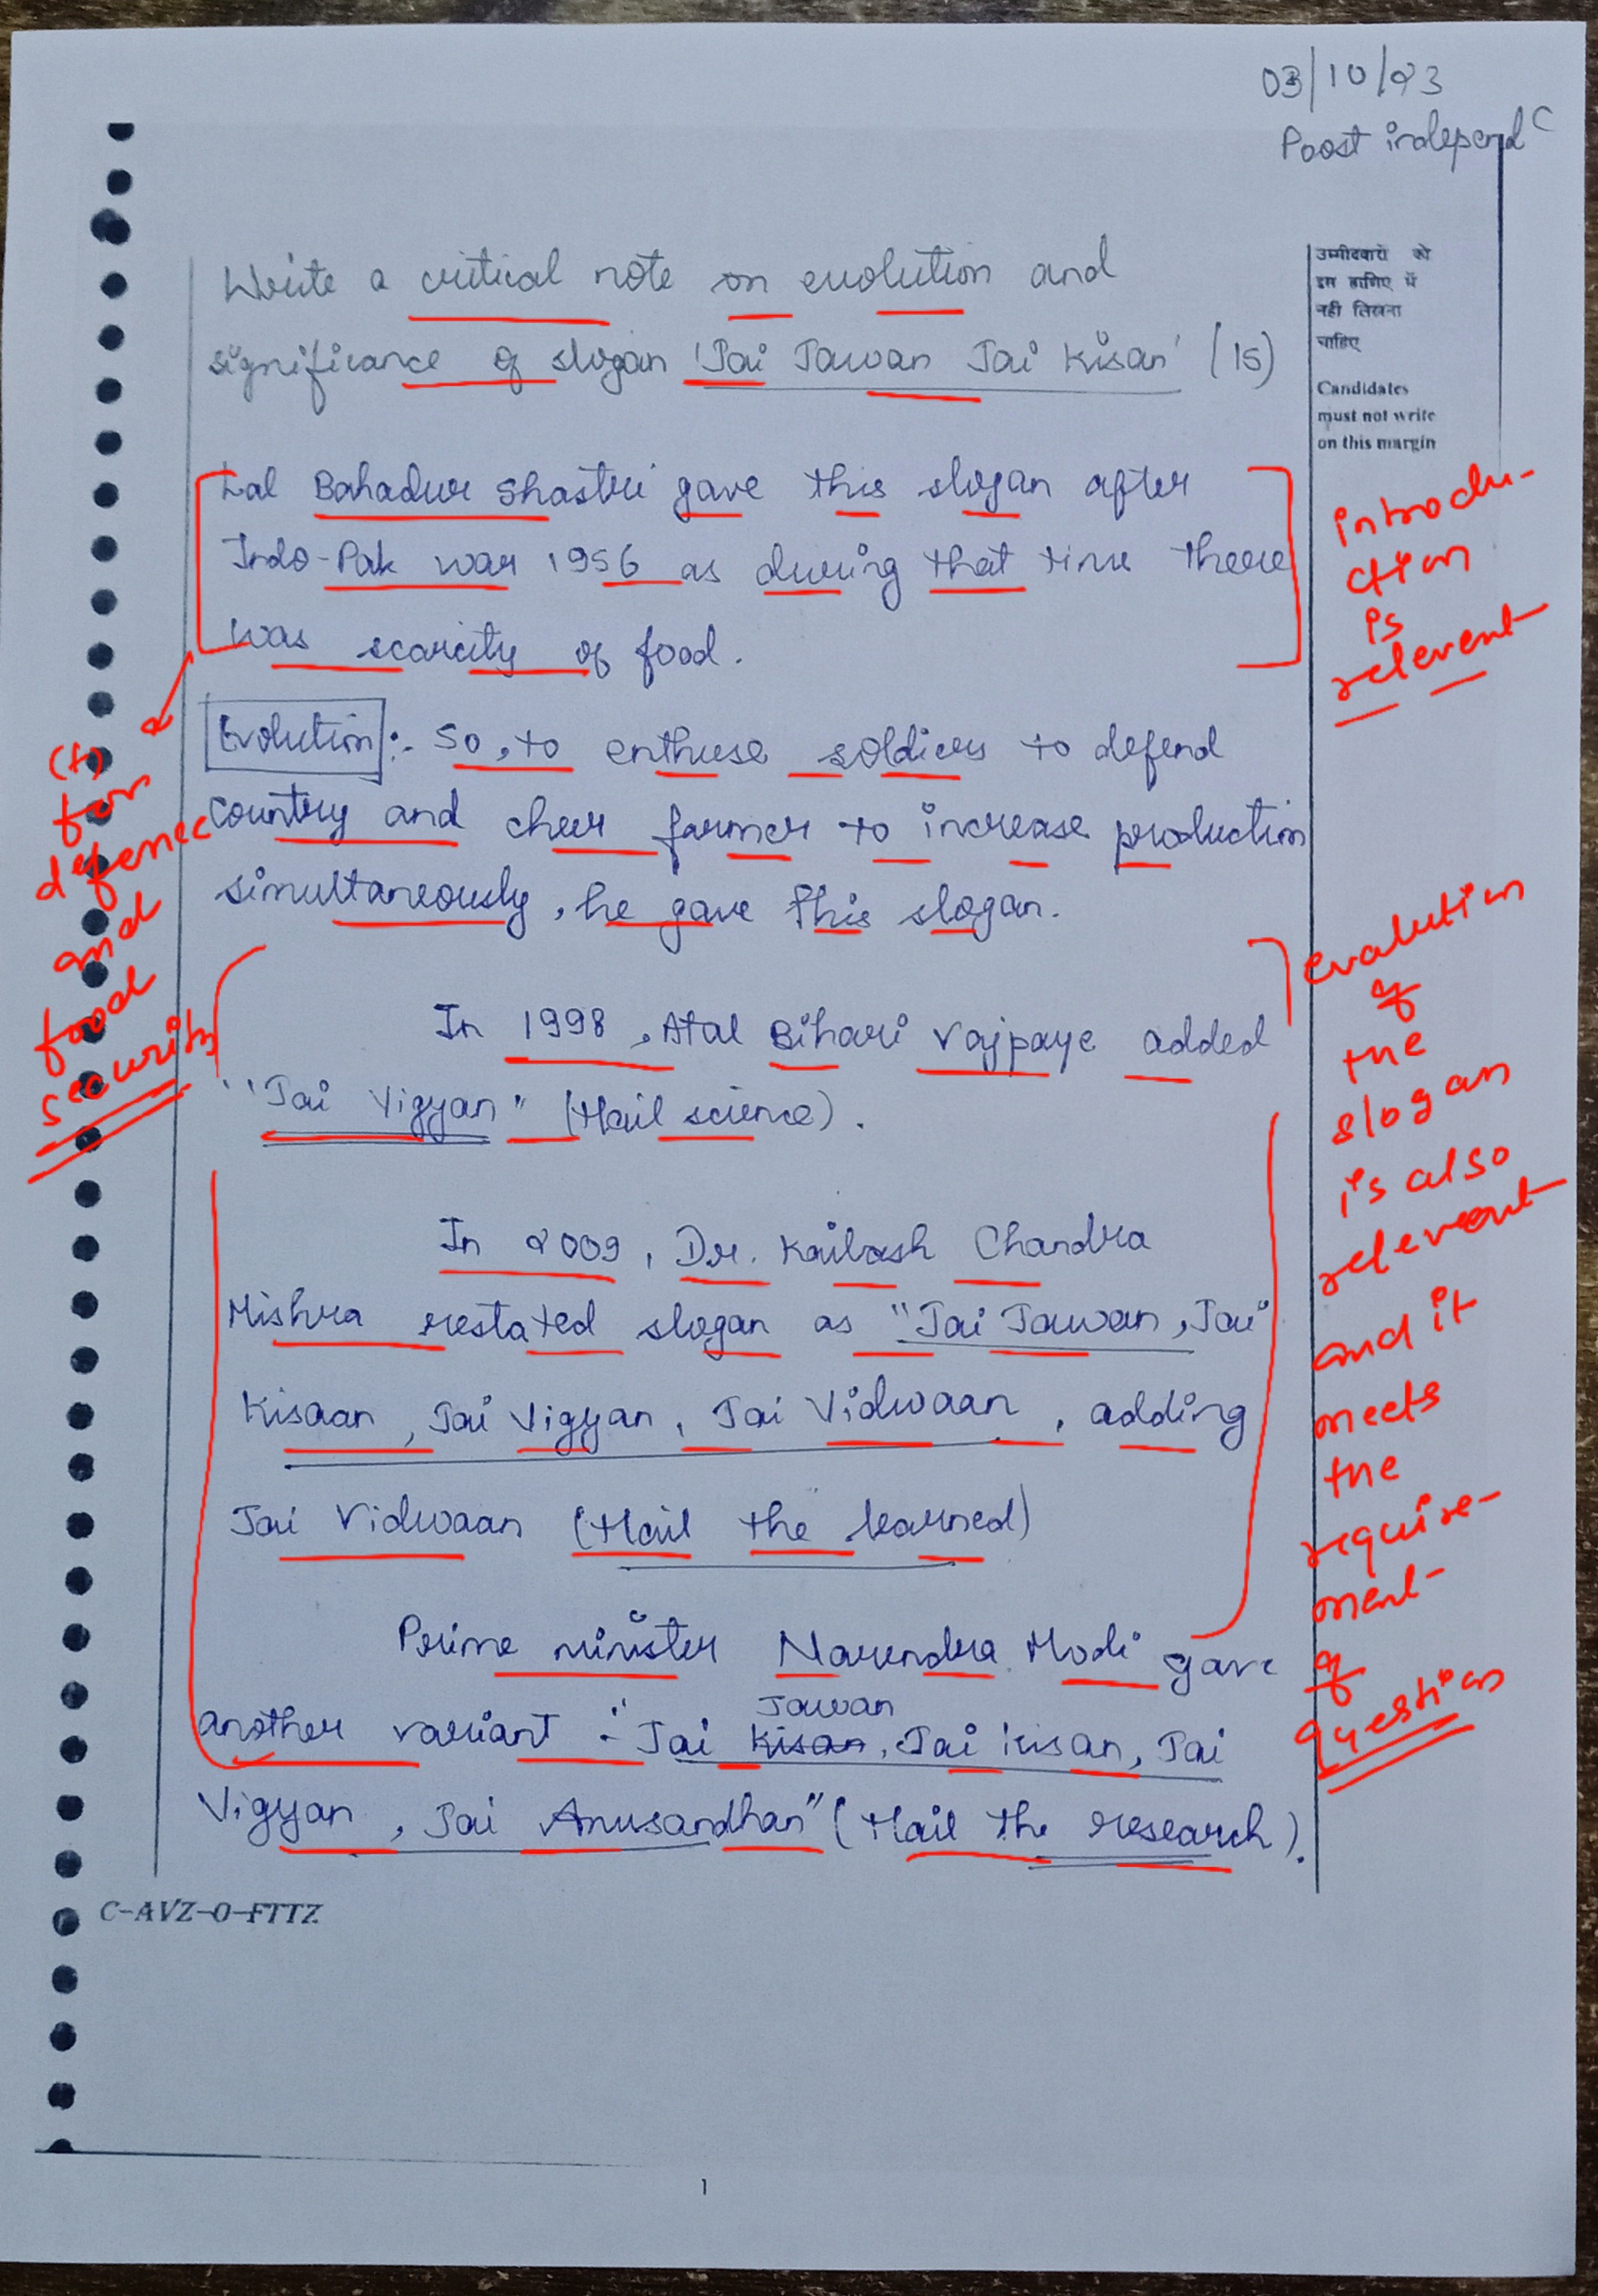 03/10/23
Poost independ c
उम्मीदवारों को
इस हाशिए में
नही लिखना
चाहिए
Candidates
must not write
on this margin
Write a critical note on evolution and
significance of slogan 'Jai Jawan Jai Kisan' (15)
Lal Bahadur Shastri gave this slogan after
Indo-Pak war 1956 as during that time there
was scarcity of food.
introdu-
ction
is
relevent
(+)
for
defence
and
food
security
Evolution :- So, to enthuse soldiers to defend
country and cheer farmer to increase production
simultaneously, he gave this slogan.
In 1998, Atal Bihari Vajpaye added
"Jai Vigyan" (Hail science).
In 2009, Dr. Kailash Chandra
Mishra restated slogan as "Jai Jawan, Jai
Kisaan, Jai Vigyan, Jai Vidwaan, adding
Jai Vidwaan (Hail the learned)
Prime minister Narendra Modi gave
another variant :- "Jai Kisan Jawan, Jai Kisan, Jai
Vigyan, Jai Anusandhan" (Hail the research).
evalution
of
the
slogan
is also
relevent
and it
meets
the
require-
ment
of
question
C-AVZ-O-FTTZ
1